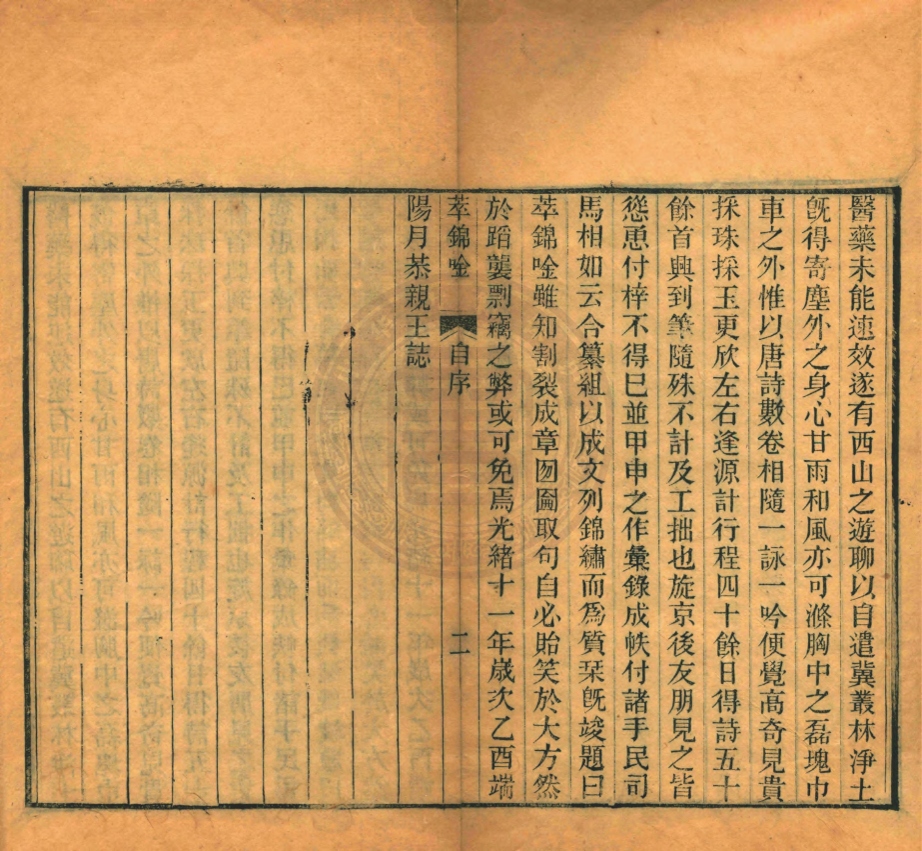 醫藥未能速效遂有西山之遊聊以自遣冀叢林淨土
旣得寄塵外之身心甘雨和風亦可滌胸中之磊塊巾
車之外惟以唐詩數卷相隨一詠一吟便覺高奇見貴
採珠採玉更欣左右逢源計行程四十餘日得詩五十
餘首興到筆隨殊不計及工拙也旋京後友朋見之皆
慫恿付梓不得已並甲申之作彙錄成帙付諸手民司
馬相如云合纂組以成文列錦繡而爲質栞旣竣題曰
萃錦唫雖知割裂成章囫圇取句自必貽笑於大方然
於蹈襲剽竊之弊或可免焉光緒十一年歲次乙酉端
萃錦唫 自序 二
陽月恭親王誌